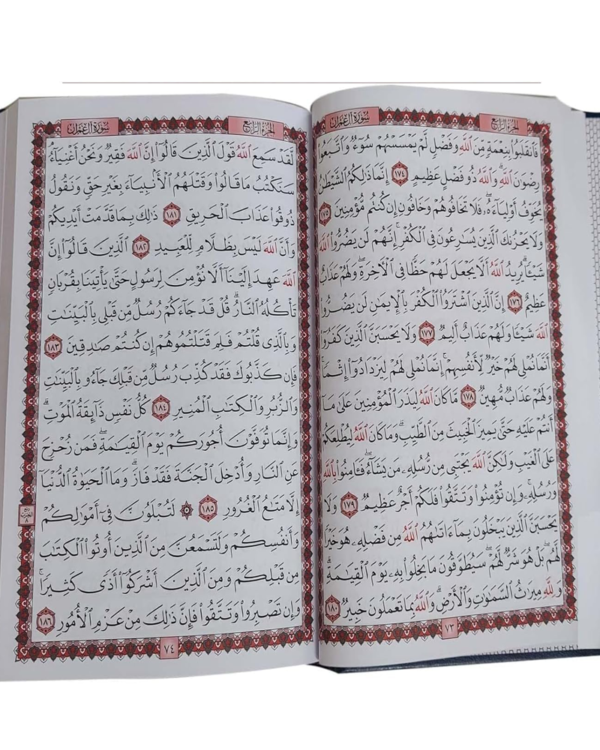 سُورَةُ آلِ عِمْرَانَ
الجُزْءُ الرَّابِعُ
فَٱنقَلَبُوا۟ بِنِعْمَةٍ مِّنَ ٱللَّهِ وَفَضْلٍ لَّمْ يَمْسَسْهُمْ سُوٓءٌ وَٱتَّبَعُوا۟
رِضْوَٰنَ ٱللَّهِ وَٱللَّهُ ذُو فَضْلٍ عَظِيمٍ ١٧٤ إِنَّمَا ذَٰلِكُمُ ٱلشَّيْطَٰنُ
يُخَوِّفُ أَوْلِيَآءَهُۥ فَلَا تَخَافُوهُمْ وَخَافُونِ إِن كُنتُم مُّؤْمِنِينَ ١٧٥
وَلَا يَحْزُنكَ ٱلَّذِينَ يُسَٰرِعُونَ فِى ٱلْكُفْرِ إِنَّهُمْ لَن يَضُرُّوا۟ ٱللَّهَ
شَيْـًٔا يُرِيدُ ٱللَّهُ أَلَّا يَجْعَلَ لَهُمْ حَظًّا فِى ٱلْءَاخِرَةِ وَلَهُمْ عَذَابٌ
عَظِيمٌ ١٧٦ إِنَّ ٱلَّذِينَ ٱشْتَرَوُا۟ ٱلْكُفْرَ بِٱلْإِيمَٰنِ لَن يَضُرُّوا۟
ٱللَّهَ شَيْـًٔا وَلَهُمْ عَذَابٌ أَلِيمٌ ١٧٧ وَلَا يَحْسَبَنَّ ٱلَّذِينَ كَفَرُوٓا۟
أَنَّمَا نُمْلِى لَهُمْ خَيْرٌ لِّأَنفُسِهِمْ إِنَّمَا نُمْلِى لَهُمْ لِيَزْدَادُوٓا۟ إِثْمًا
وَلَهُمْ عَذَابٌ مُّهِينٌ ١٧٨ مَّا كَانَ ٱللَّهُ لِيَذَرَ ٱلْمُؤْمِنِينَ عَلَىٰ مَآ
أَنتُمْ عَلَيْهِ حَتَّىٰ يَمِيزَ ٱلْخَبِيثَ مِنَ ٱلطَّيِّبِ وَمَا كَانَ ٱللَّهُ لِيُطْلِعَكُمْ
عَلَى ٱلْغَيْبِ وَلَٰكِنَّ ٱللَّهَ يَجْتَبِى مِن رُّسُلِهِۦ مَن يَشَآءُ فَـَٔامِنُوا۟ بِٱللَّهِ
وَرُسُلِهِۦ وَإِن تُؤْمِنُوا۟ وَتَتَّقُوا۟ فَلَكُمْ أَجْرٌ عَظِيمٌ ١٧٩ وَلَا
يَحْسَبَنَّ ٱلَّذِينَ يَبْخَلُونَ بِمَآ ءَاتَىٰهُمُ ٱللَّهُ مِن فَضْلِهِۦ هُوَ خَيْرًا
لَّهُم بَلْ هُوَ شَرٌّ لَّهُمْ سَيُطَوَّقُونَ مَا بَخِلُوا۟ بِهِۦ يَوْمَ ٱلْقِيَٰمَةِ
وَلِلَّهِ مِيرَٰثُ ٱلسَّمَٰوَٰتِ وَٱلْأَرْضِ وَٱللَّهُ بِمَا تَعْمَلُونَ خَبِيرٌ ١٨٠
٧٣
سُورَةُ آلِ عِمْرَانَ
الجُزْءُ الرَّابِعُ
لَّقَدْ سَمِعَ ٱللَّهُ قَوْلَ ٱلَّذِينَ قَالُوٓا۟ إِنَّ ٱللَّهَ فَقِيرٌ وَنَحْنُ أَغْنِيَآءُ
سَنَكْتُبُ مَا قَالُوا۟ وَقَتْلَهُمُ ٱلْأَنۢبِيَآءَ بِغَيْرِ حَقٍّ وَنَقُولُ
ذُوقُوا۟ عَذَابَ ٱلْحَرِيقِ ١٨١ ذَٰلِكَ بِمَا قَدَّمَتْ أَيْدِيكُمْ
وَأَنَّ ٱللَّهَ لَيْسَ بِظَلَّامٍ لِّلْعَبِيدِ ١٨٢ ٱلَّذِينَ قَالُوٓا۟ إِنَّ
ٱللَّهَ عَهِدَ إِلَيْنَآ أَلَّا نُؤْمِنَ لِرَسُولٍ حَتَّىٰ يَأْتِيَنَا بِقُرْبَانٍ
تَأْكُلُهُ ٱلنَّارُ قُلْ قَدْ جَآءَكُمْ رُسُلٌ مِّن قَبْلِى بِٱلْبَيِّنَٰتِ
وَبِٱلَّذِى قُلْتُمْ فَلِمَ قَتَلْتُمُوهُمْ إِن كُنتُمْ صَٰدِقِينَ ١٨٣
فَإِن كَذَّبُوكَ فَقَدْ كُذِّبَ رُسُلٌ مِّن قَبْلِكَ جَآءُو بِٱلْبَيِّنَٰتِ
وَٱلزُّبُرِ وَٱلْكِتَٰبِ ٱلْمُنِيرِ ١٨٤ كُلُّ نَفْسٍ ذَآئِقَةُ ٱلْمَوْتِ
وَإِنَّمَا تُوَفَّوْنَ أُجُورَكُمْ يَوْمَ ٱلْقِيَٰمَةِ فَمَن زُحْزِحَ
عَنِ ٱلنَّارِ وَأُدْخِلَ ٱلْجَنَّةَ فَقَدْ فَازَ وَمَا ٱلْحَيَوٰةُ ٱلدُّنْيَآ
إِلَّا مَتَٰعُ ٱلْغُرُورِ ١٨٥ لَتُبْلَوُنَّ فِىٓ أَمْوَٰلِكُمْ
وَأَنفُسِكُمْ وَلَتَسْمَعُنَّ مِنَ ٱلَّذِينَ أُوتُوا۟ ٱلْكِتَٰبَ
مِن قَبْلِكُمْ وَمِنَ ٱلَّذِينَ أَشْرَكُوٓا۟ أَذًى كَثِيرًا
وَإِن تَصْبِرُوا۟ وَتَتَّقُوا۟ فَإِنَّ ذَٰلِكَ مِنْ عَزْمِ ٱلْأُمُورِ ١٨٦
٧٤